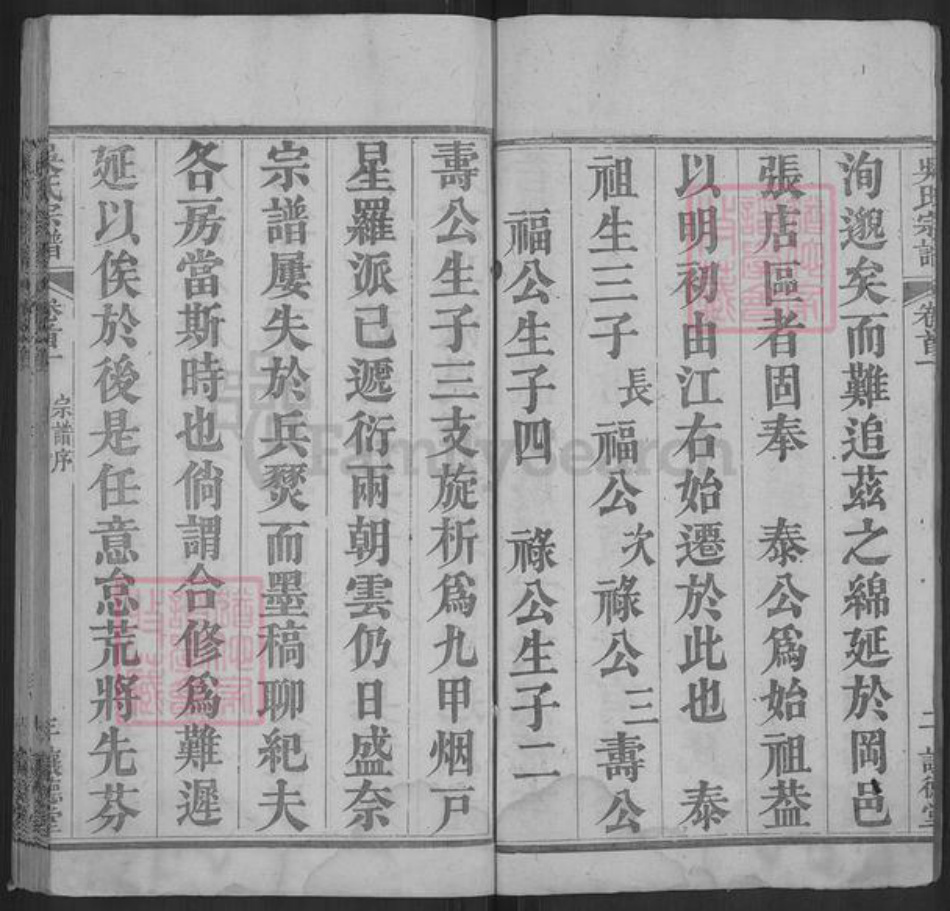 吳氏宗譜 卷首一
洵邈矣而難追茲之綿延於岡邑
張店區者固奉 泰公爲始祖葢
以明初由江右始遷於此也 泰
祖生三子 長 福公 次 祿公 三 壽公
福公生子四 祿公生子二
壽公生子三支旋析爲九甲烟戸
星羅派已遞衍兩朝雲仍日盛奈
宗譜屢失於兵燹而墨稿聊紀夫
各房當斯時也倘謂合修爲難遲
延以俟於後是任意怠荒將先芬
吳氏宗譜 卷首一 宗譜序 讓德堂
FamilySearch